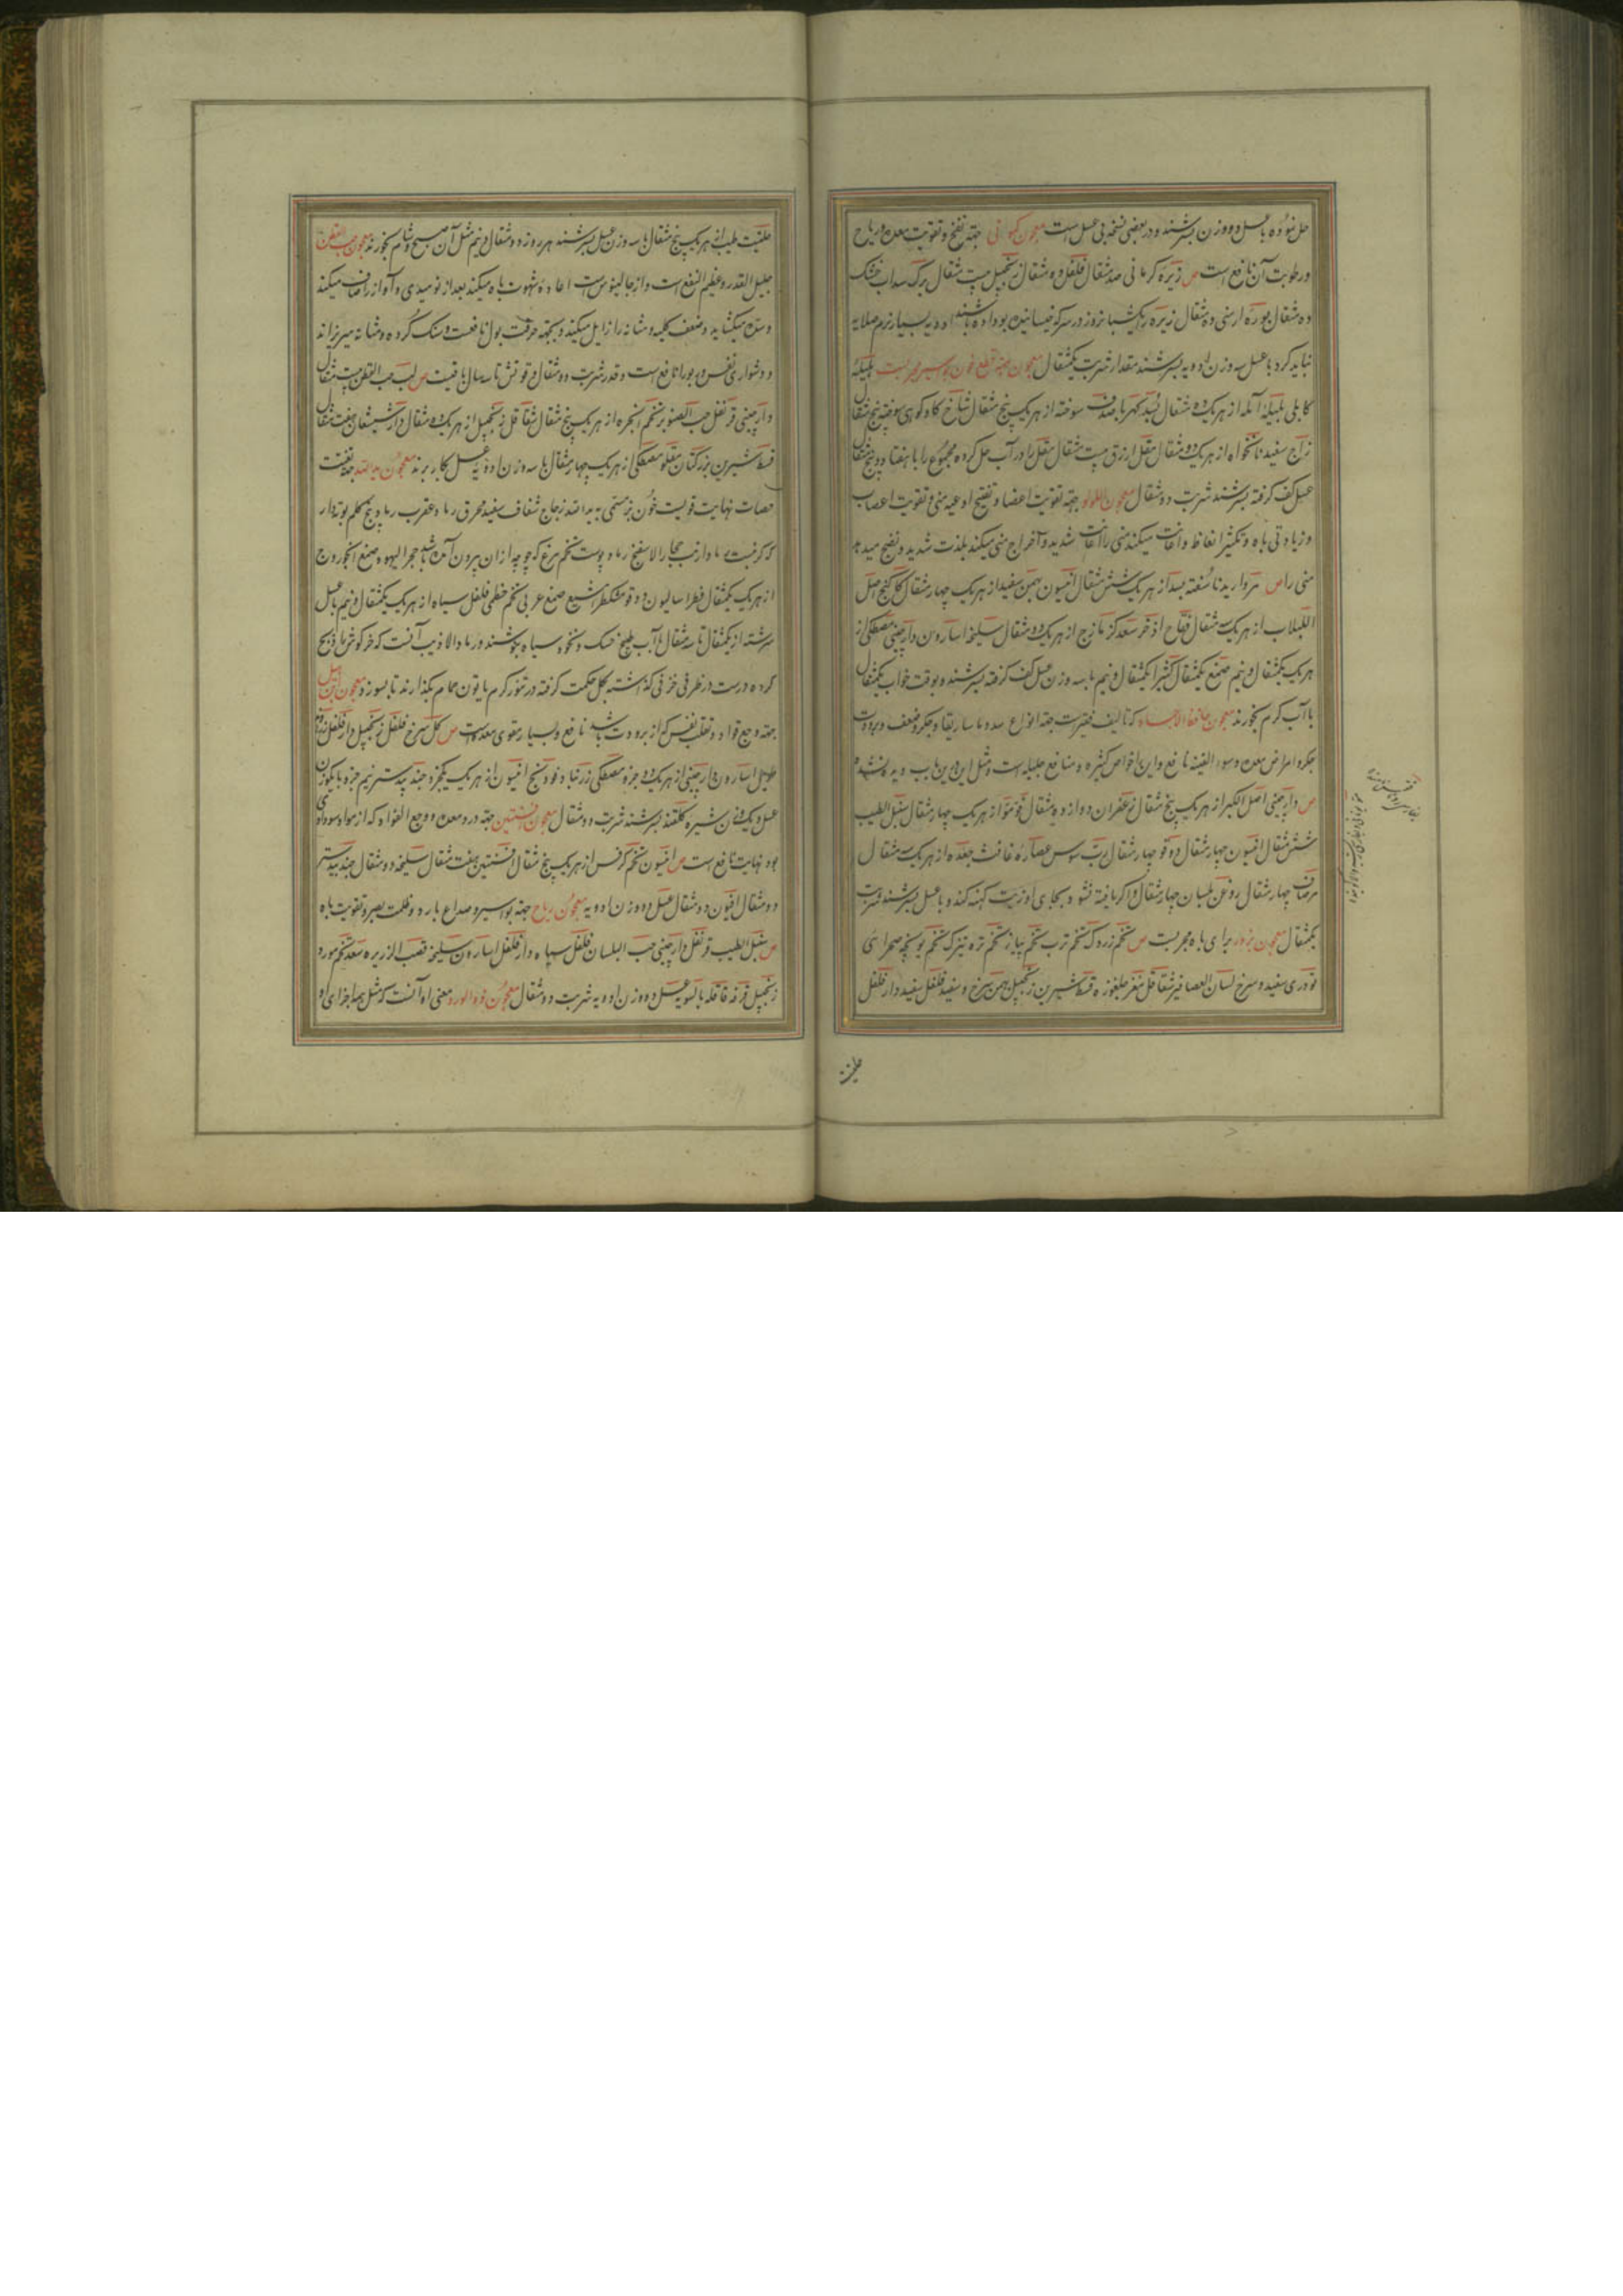 حل نموده با عسل دو وزن بسرشند و در بعضی نسخ بی عسل است معجون کمونی جهة نفخ و تقویت معده و ریاح
و رطوبت آن نافع است ص زیره کرمانی صد مثقال فلفل ده مثقال زنجبیل بیست مثقال برک سداب خشک
ده مثقال بوره ارمنی ده مثقال زیره را یکشبانروز در سرکه خیسانیده بو داده باشند ادویه بسیار نرم صلایه
نباید کرد با عسل سه وزن ادویه بسرشند مقدار شربت یکمثقال معجون جهة قطع خون بواسیر مجربست هلیله
کابلی بلیله آمله از هریک ده مثقال بسد کهربا صدف سوخته از هریک پنج مثقال شاخ کاو کوهی سوخته پنج مثقال
زاج سفید نانخواه از هریک دو مثقال مقل ازرق بیست مثقال مقل را در آب حل کرده مجموع را با هفتاد و پنج مثقال
عسل کف کرفته بسرشند شربت دو مثقال معجون اللولو جهة تقویت اعضا و تفتیح اوعیه منی و تقویت اعصاب
و زیادتی باه و تکثیر انعاظ و اعانت میکند منی را اعانت شدید و اخراج منی میکند بلذت شدید و نضج میدهد
منی را ص مروارید ناسفته بسد از هریک شش مثقال انیسون بهمن سفید از هریک چهار مثقال کاکنج اصل
اللبلاب از هریک سه مثقال فقاح اذخر سعد کزمازج از هریک دو مثقال سلیخه اسارون دارچینی مصطکی از
هریک یکمثقال و نیم صمغ یکمثقال کثیرا یکمثقال و نیم با سه وزن عسل کف کرفته بسرشند و بوقت خواب یکمثقال
با آب کرم بخورند معجون حافظ الاجساد که تالیف فقیر است جهة انواع سده ماساریقا و جکر و ضعف و برودت
جکر و امراض معده و سوء القنیه نافع و این را خواص کثیره و منافع جلیله است و مثل این درین باب دیده نشده
ص دارچینی اصل الکبر از هریک پنج مثقال زعفران دوازده مثقال فو مو از هریک چهار مثقال سنبل الطیب
شش مثقال انیسون چهار مثقال دوقو چهار مثقال رب سوس عصاره غافث جعده از هریک سه مثقال
مر صاف چهار مثقال روغن بلسان چهار مثقال و اکر یافته نشود بجای او زیت کهنه کند و با عسل بسرشند شربت
یکمثقال معجون بزور برای باه مجربست ص تخم زردک تخم ترب تخم پیاز تخم تره تیزک تخم یونجه صحرائی
تودری سفید و سرخ لسان العصافیر شقاقل مغز جلغوزه قسط شیرین زنجبیل بهمن سرخ و سفید فلفل سفید دارفلفل
حلتیت
حلتیت طیب از هریک پنج مثقال با سه وزن عسل بسرشند هر روز دو مثقال و نیم مثل آن صبح و شام بخورند معجون حب القطن
جلیل القدر و عظیم النفع است و از جالینوس است اعاده شهوت باه میکند بعد از نومیدی و آواز را صاف میکند
و سده میکشاید و ضعف کلیه و مثانه را زایل میکند و بجهة حرقت بول نافعست و سنک کرده و مثانه میریزاند
و دشواری نفس و ربو را نافع است و قدر شربت دو مثقال و قوتش تا سه سال باقیست ص لب حب القطن بیست مثقال
دارچینی قرنفل حب الصنوبر تخم انجره از هریک پنج مثقال شقاقل زنجبیل از هریک دو مثقال دارشیشعان هفت مثقال
قسط شیرین بزر کتان مقلو مصطکی از هریک چهار مثقال با سه وزن ادویه عسل بکار برند معجون ید الله جهة تفتیت
حصات نهایت قویست خون بز مسمی به ید الله زجاج شفاف سفید محرق رماد عقرب رماد بیخ کلم بوته دار
از هریک یکمثقال فطراسالیون دوقو مشکطرامشیع صمغ عربی تخم خطمی فلفل سیاه از هریک یکمثقال و نیم با عسل
سرشته از یکمثقال تا سه مثقال با آب طبیخ خسک و نخود سیاه بنوشند و رماد الارنب آنست که خرکوش را ذبح
کرده درست در ظرفی خزفی کذاشته بکل حکمت کرفته در تنور کرم یا تون حمام بکذارند تا بسوزد معجون
جهة وجع فواد و تقلب نفس که از برودت باشد نافع و بسیار مقوی معده است ص کل سرخ فلفل زنجبیل دارفلفل زراوند
طویل اسارون دارچینی از هریک دو جزو مصطکی زرنباد فودنج انیسون از هریک یکجزو جند بیدستر نیم جزو با یکوزن
عسل و یکوزن شیره کلقند بسرشند شربت دو مثقال معجون افسنتین جهة درد معده و وجع الفواد که از مواد سوداوی
بود نهایت نافع است ص انیسون تخم کرفس از هریک پنج مثقال افسنتین هفت مثقال سلیخه دو مثقال جند بیدستر
دو مثقال افیون دو مثقال عسل دو وزن ادویه معجون ریاح جهة بواسیر و صداع بارد و ظلمت بصر و تقویت باه
ص سنبل الطیب قرنفل دارچینی حب البلسان فلفل سیاه دارفلفل اسارون سلیخه قصب الذریره سعد تخم مورد
زنجبیل قرفه قاقله بالسویه عسل دو وزن ادویه شربت دو مثقال معجون دواء الورد معنی او آنست که مثل همه اجزای او